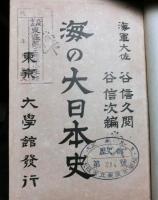 海軍大佐 谷信久閲
谷信次編
海の大日本史
東京 大學館發行